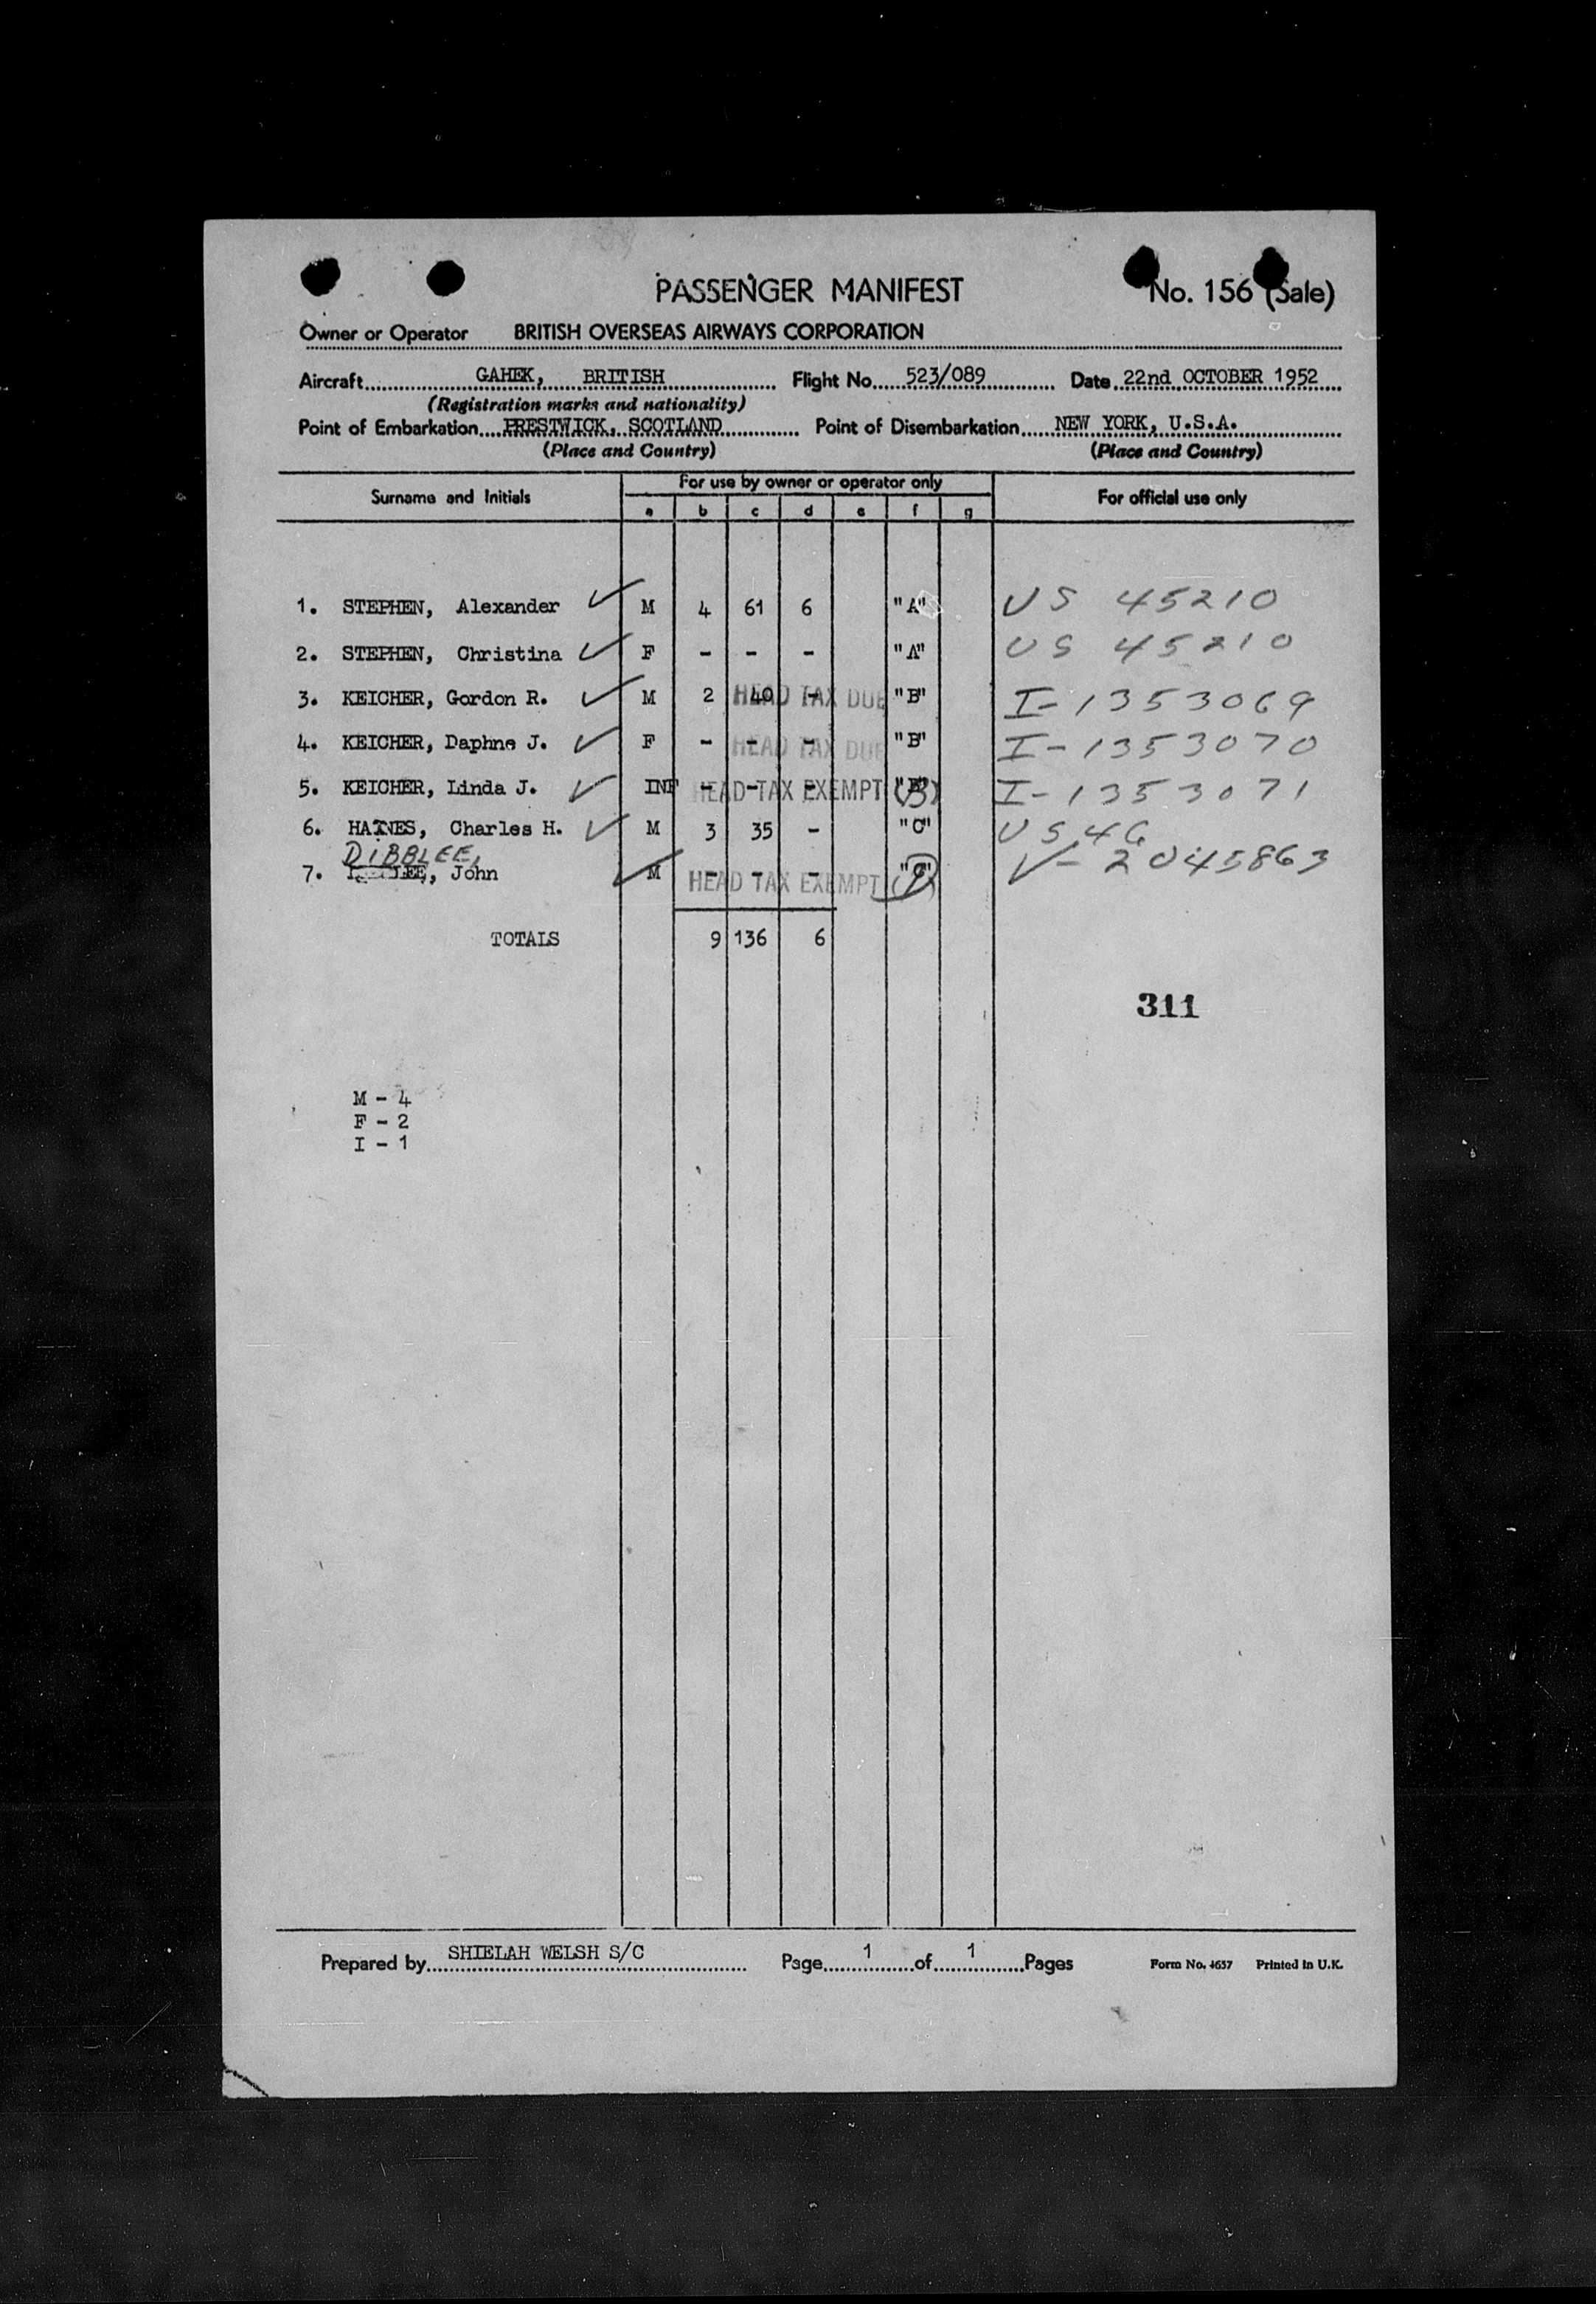 PASSENGER MANIFEST No. 156 (Sale)
Owner or Operator BRITISH OVERSEAS AIRWAYS CORPORATION
Aircraft GAHEK, BRITISH Flight No. 523/089 Date 22nd OCTOBER 1952
(Registration marks and nationality)
Point of Embarkation PRESTWICK, SCOTLAND Point of Disembarkation NEW YORK, U.S.A.
(Place and Country) (Place and Country)
Surname and Initials For use by owner or operator only For official use only
a b c d e f g
1. STEPHEN, Alexander ✓ M 4 61 6 "A" US 45210
2. STEPHEN, Christina ✓ F - - - "A" US 45210
3. KEICHER, Gordon R. ✓ M 2 40 - HEAD TAX DUE "B" I-1353069
4. KEICHER, Daphne J. ✓ F - - - HEAD TAX DUE "B" I-1353070
5. KEICHER, Linda J. ✓ INF - - - HEAD TAX EXEMPT (3) I-1353071
6. HAINES, Charles H. ✓ M 3 35 - "C" US 46
DIBBLEE,
7. LEE, John ✓ M - - - HEAD TAX EXEMPT V-2045863
TOTALS 9 136 6
311
M - 4
F - 2
I - 1
Prepared by SHIELAH WELSH S/C Page 1 of 1 Pages Form No. 4637 Printed in U.K.